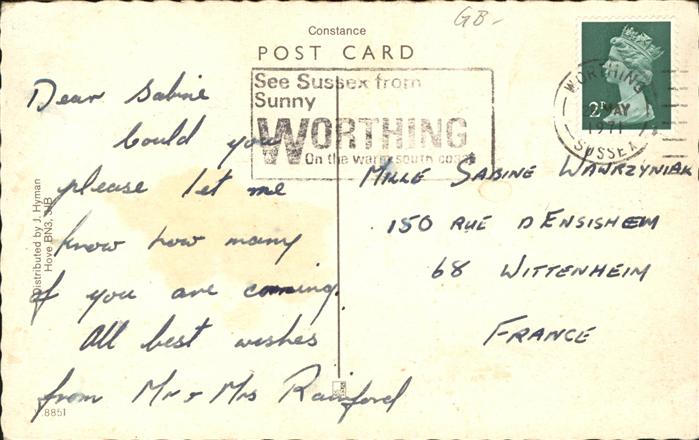 GB-
Constance
POST CARD
See Sussex from
Sunny
WORTHING
On the warm south coast
WORTHING
2 MAY
1971
SUSSEX
2
Dear Sabine
Could you
please let me
know how many
of you are coming.
All best wishes
from Mr & Mrs Rainford
MLLE SABINE WAWRZYNIAK
150 RUE D ENSISHEIM
68 WITTENHEIM
FRANCE
Distributed by J. Hyman
Hove BN3,
.8851